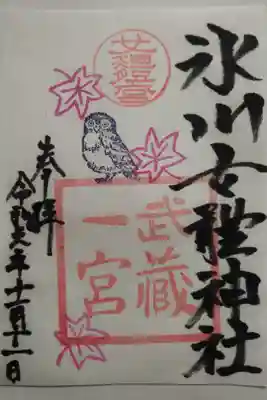 氷川女體神社
武蔵
一宮
奉拝
令和六年十一月十一日